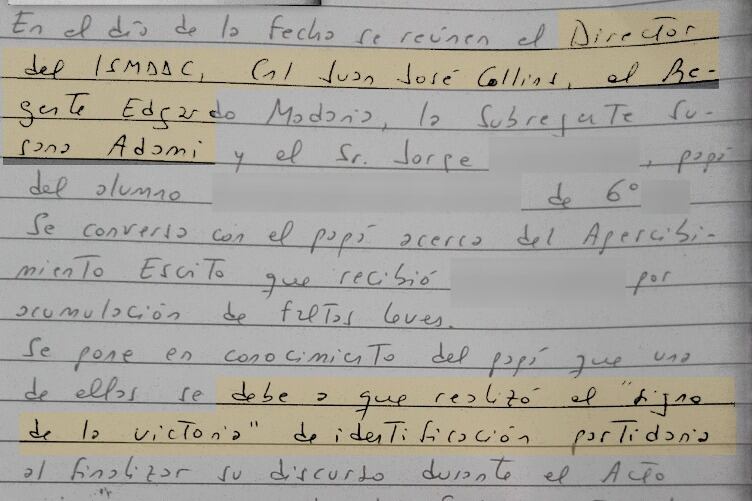 En el día de la fecha se reúnen el Director
del ISMDDC, Cnl Juan José Collins, el Re-
gente Edgardo Madaria, la Subregente Su-
sana Adami y el Sr. Jorge , papá
del alumno de 6°
Se conversa con el papá acerca del Apercibi-
miento Escrito que recibió por
acumulación de faltas leves.
Se pone en conocimiento del papá que una
de ellas se debe a que realizó el "signo
de la victoria" de identificación partidaria
al finalizar su discurso durante el Acto